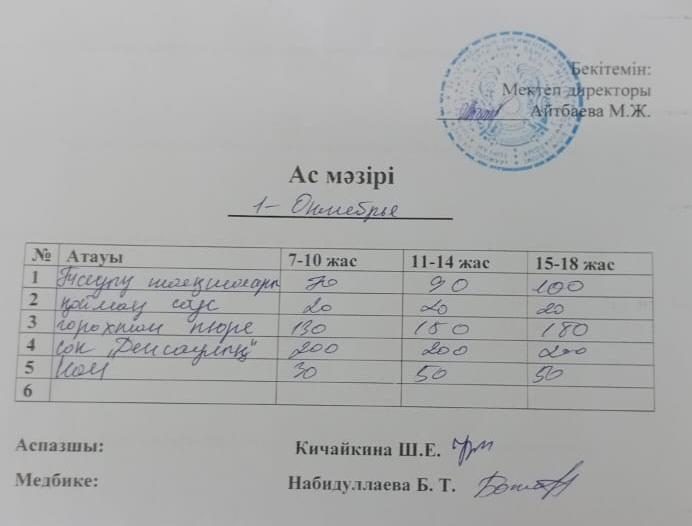 Бекітемін:
Мектеп директоры
Айтбаева М.Ж.
Ас мәзірі
1- Октебрье
№ Атауы 7-10 жас 11-14 жас 15-18 жас
1 70 90 100
2 қаймақ соус 20 20 20
3 горохтан пюре 130 150 180
4 сок „Денсаулық" 200 200 200
5 Нан 30 50 50
6
Аспазшы: Кичайкина Ш.Е.
Медбике: Набидуллаева Б. Т.